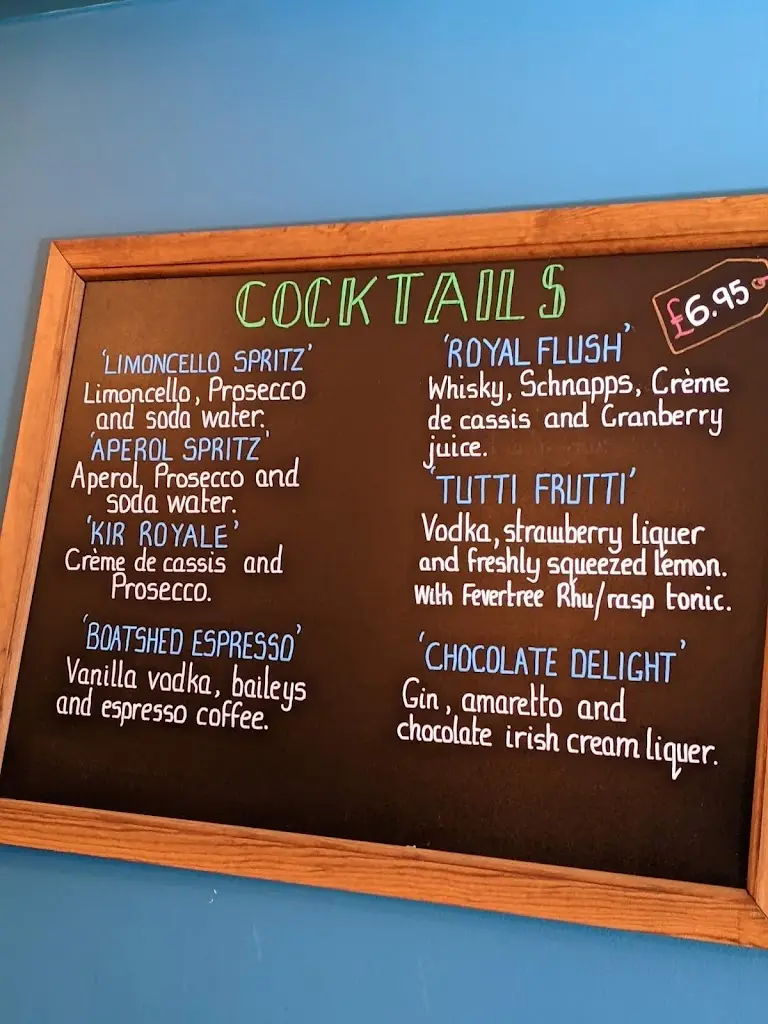 COCKTAILS
£6.95
'LIMONCELLO SPRITZ'
Limoncello, Prosecco
and soda water.
'APEROL SPRITZ'
Aperol, Prosecco and
soda water.
'KIR ROYALE'
Crème de cassis and
Prosecco.
'BOATSHED ESPRESSO'
Vanilla vodka, baileys
and espresso coffee.
'ROYAL FLUSH'
Whisky, Schnapps, Crème
de cassis and Cranberry
juice.
'TUTTI FRUTTI'
Vodka, strawberry liquer
and freshly squeezed lemon.
With Fevertree Rhu/rasp tonic.
'CHOCOLATE DELIGHT'
Gin, amaretto and
chocolate irish cream liquer.